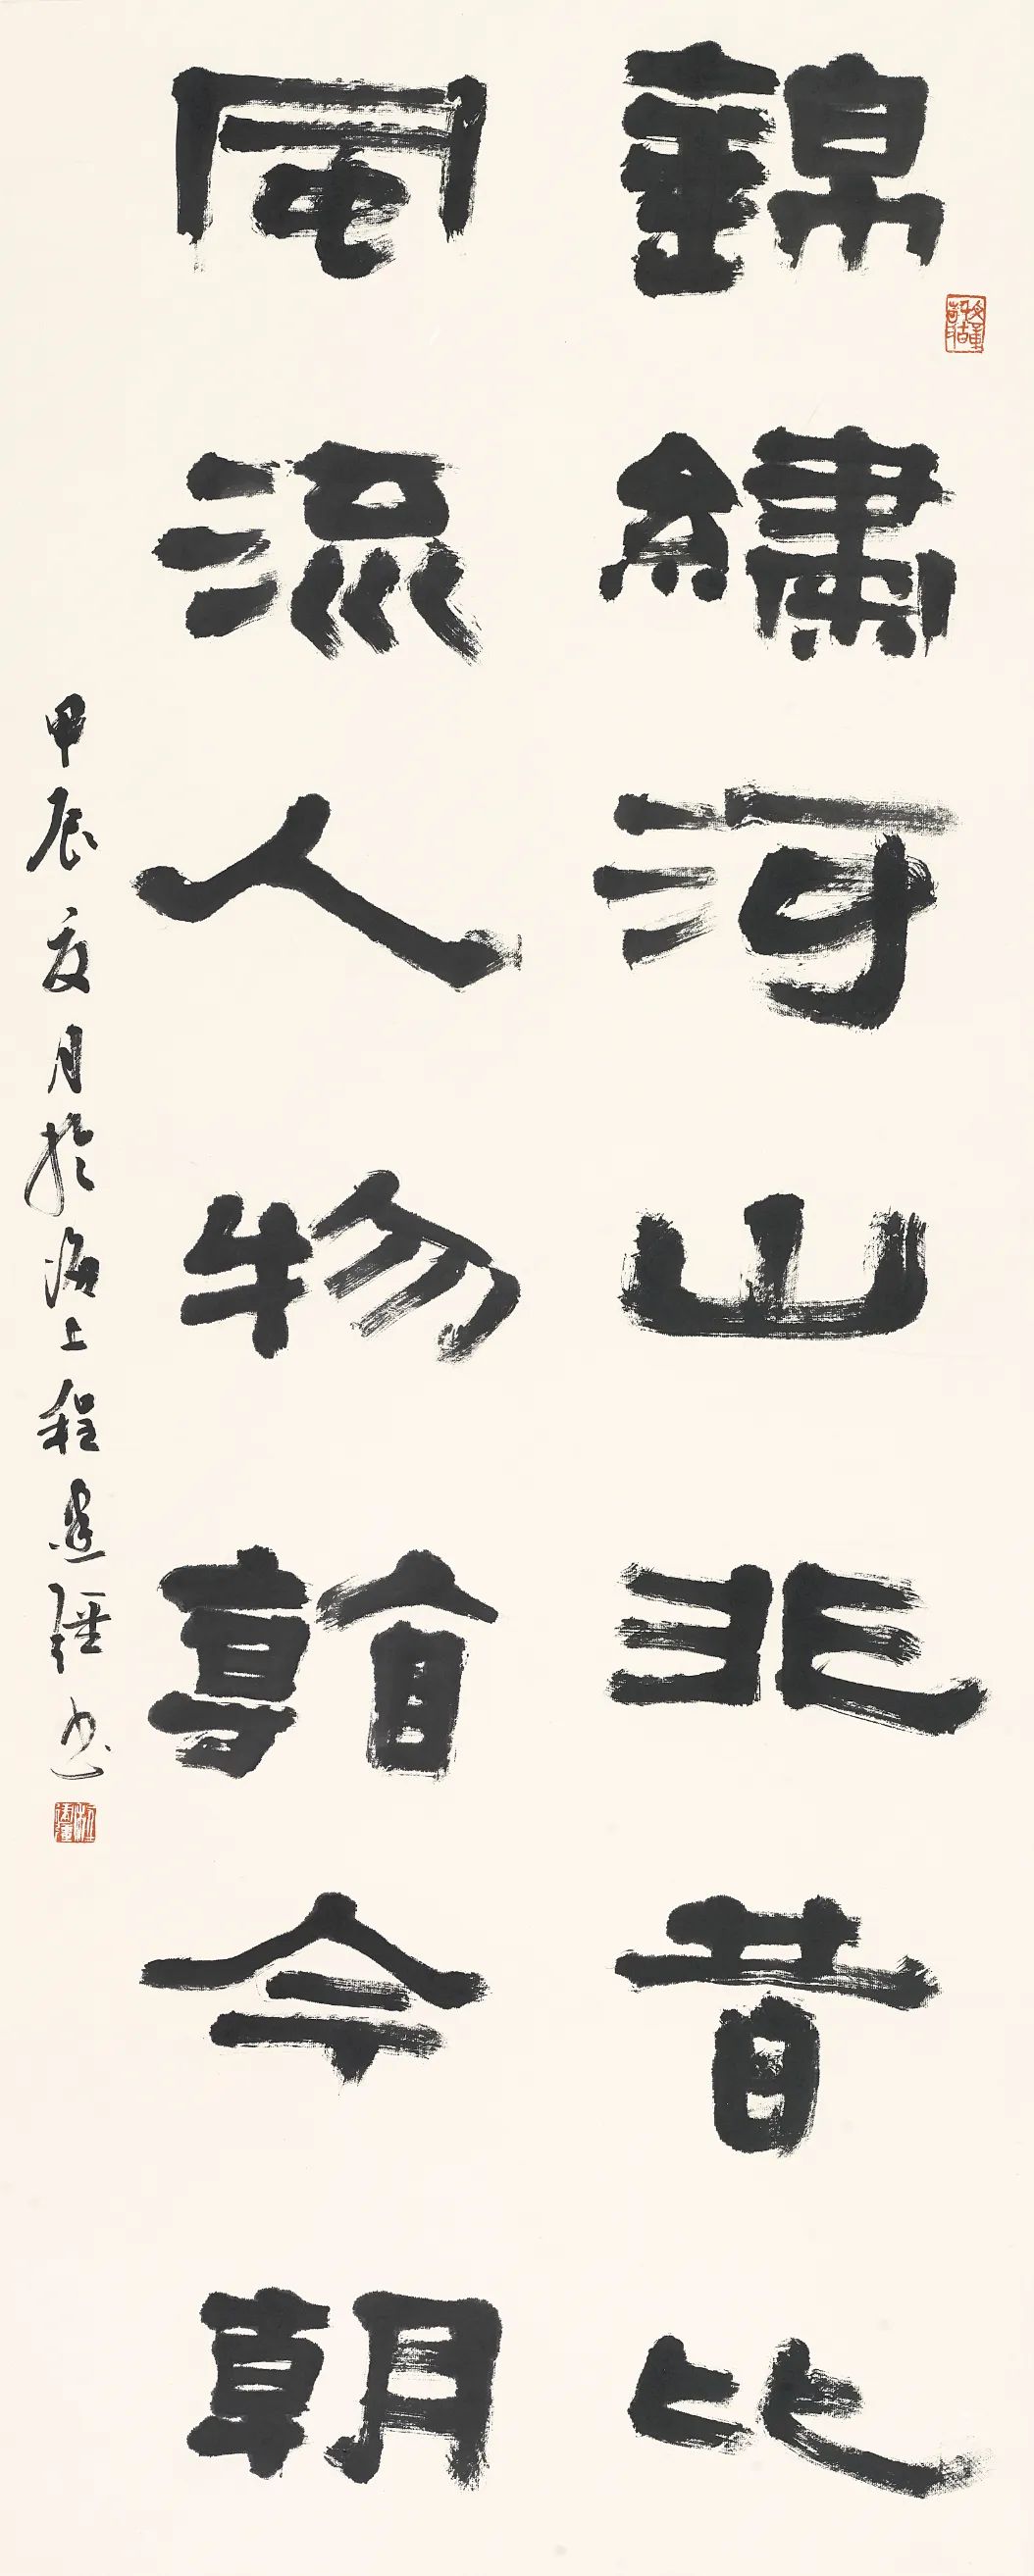 錦繡河山非昔比
風流人物翰今朝
甲辰夏月於海上程建強書